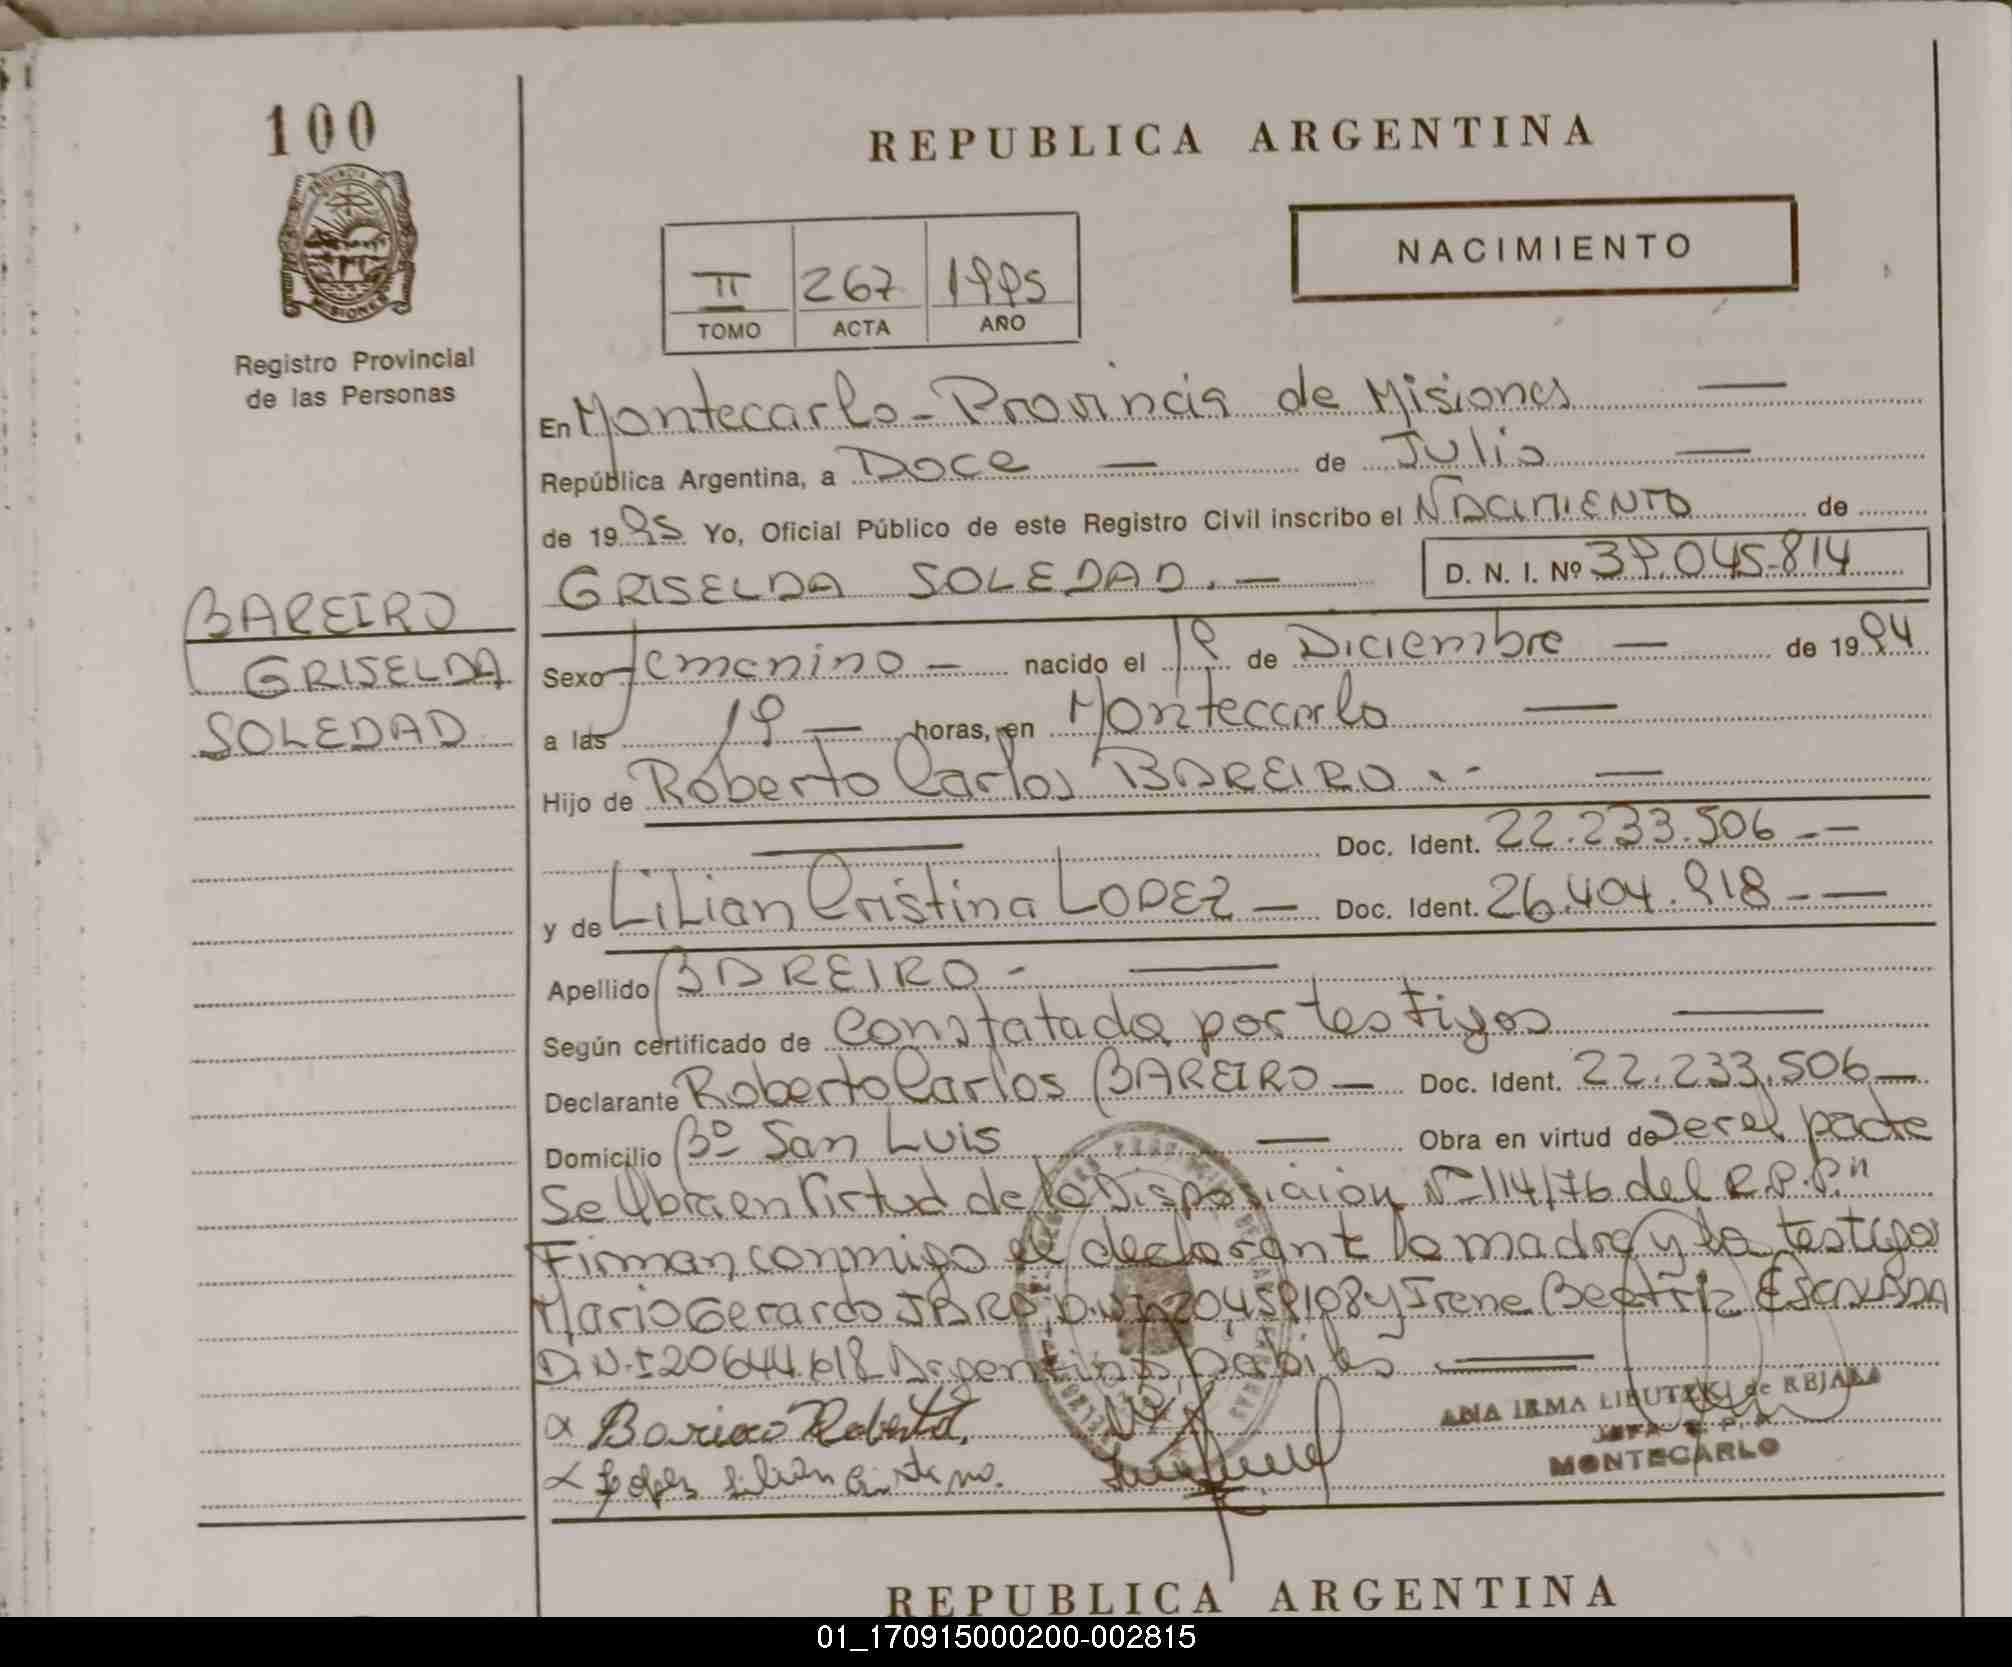 100
REPUBLICA ARGENTINA
PROVINCIA DE
MISIONES
NACIMIENTO
II 267 1995
TOMO ACTA AÑO
Registro Provincial
de las Personas
En Montecarlo - Provincia de Misiones —
República Argentina, a Doce — de Julio —
de 1995 Yo, Oficial Público de este Registro Civil inscribo el NACIMIENTO de
GRISELDA SOLEDAD. — D. N. I. Nº 39.045.814
BAREIRO
GRISELDA
SOLEDAD
Sexo femenino — nacido el 19 de Diciembre — de 1994
a las 19 — horas, en Montecarlo —
Hijo de Roberto Carlos BAREIRO . - —
Doc. Ident. 22.233.506 - —
y de LiLian Cristina LOPEZ — Doc. Ident. 26.404.918 - —
Apellido BAREIRO - —
Según certificado de Constatada por testigos —
Declarante Roberto Carlos BAREIRO — Doc. Ident. 22.233.506 —
Domicilio Bº San Luis — Obra en virtud de ser el padre
Se Obra en Virtud de la Disposición Nº 114/76 del R.P.P."
Firman conmigo el declarant la madre y los testigos
Mario Gerardo D.N.I. 20.459.108 y Irene Beatriz ESCALADA
D.N.I 20644.618 Argentinos —
x Bareiro Roberto,
x Lopez Lilian Cristina.
ANA IRMA LIBUTZKI de REJALA
JEFA R. P. P.
MONTECARLO
REPUBLICA ARGENTINA
01_170915000200-002815